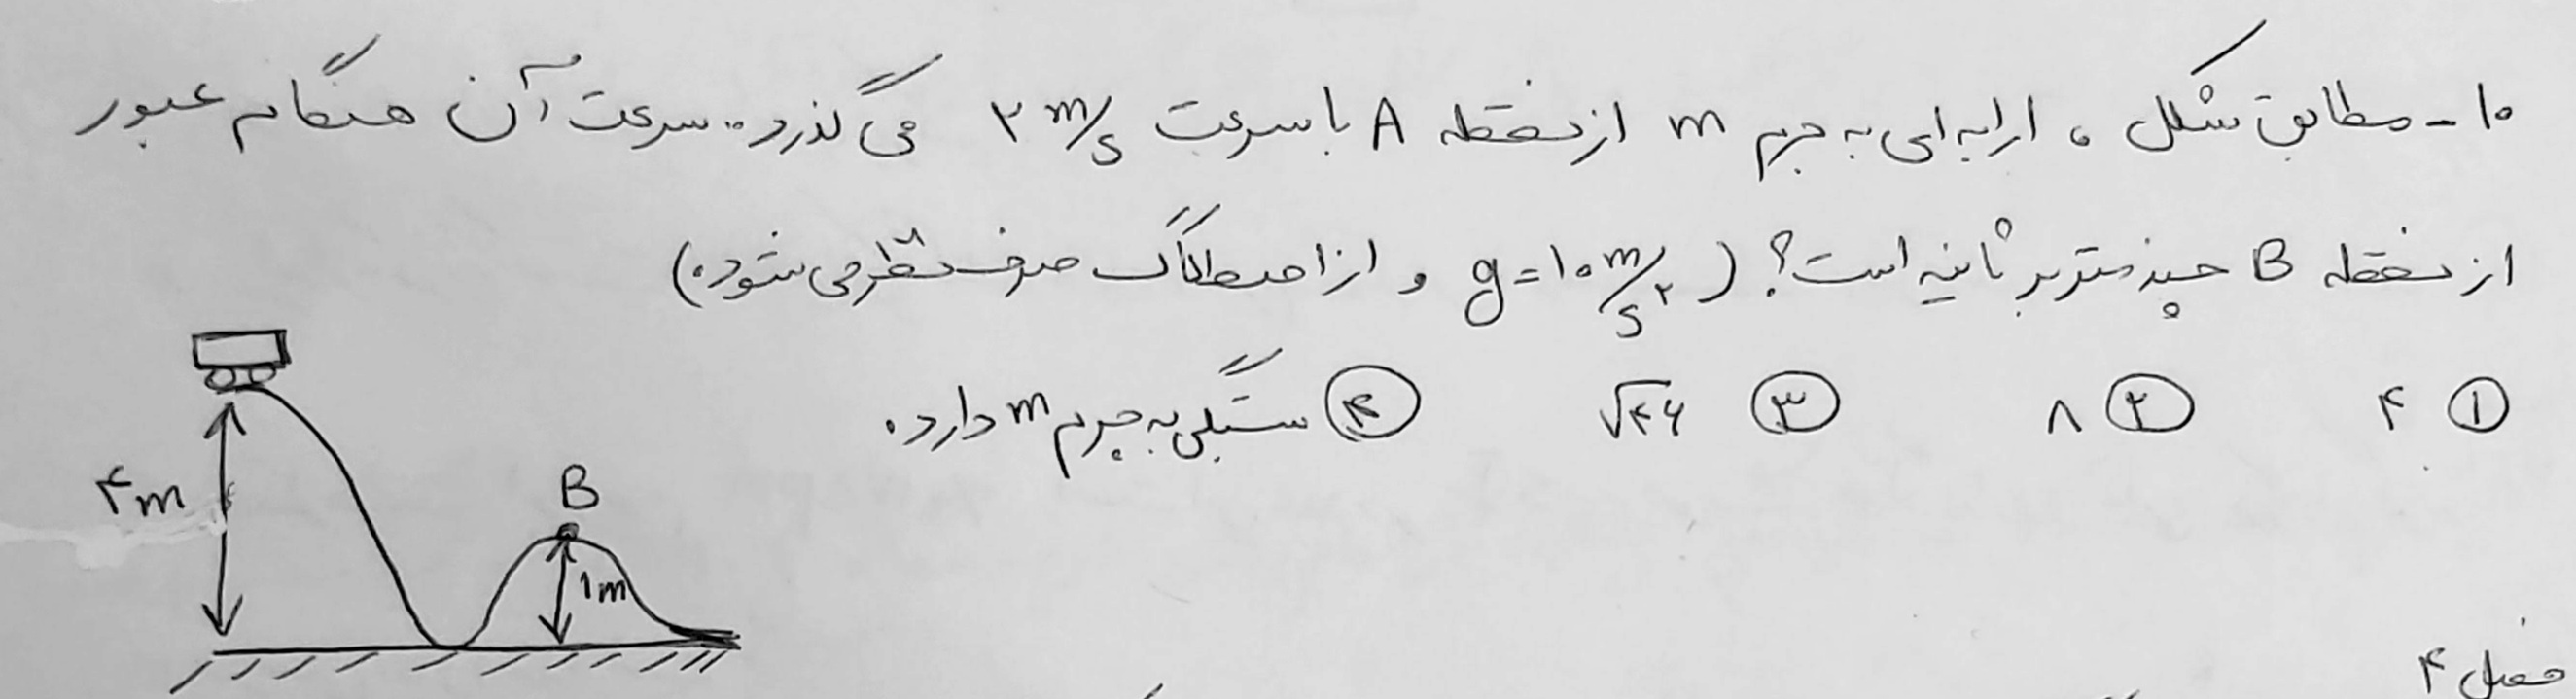 ۱۰- مطابق شکل، ارابه ای به جرم m از نقطه A با سرعت ۲ m/s می گذرد. سرعت آن هنگام عبور
از نقطه B چند متر بر ثانیه است؟ (g=۱۰ m/s² و از اصطکاک صرف نظر می شود.)
① ۴ ② ۸ ③ √۴۶ ④ بستگی به جرم m دارد.
۴m
B
۱m
فصل ۴